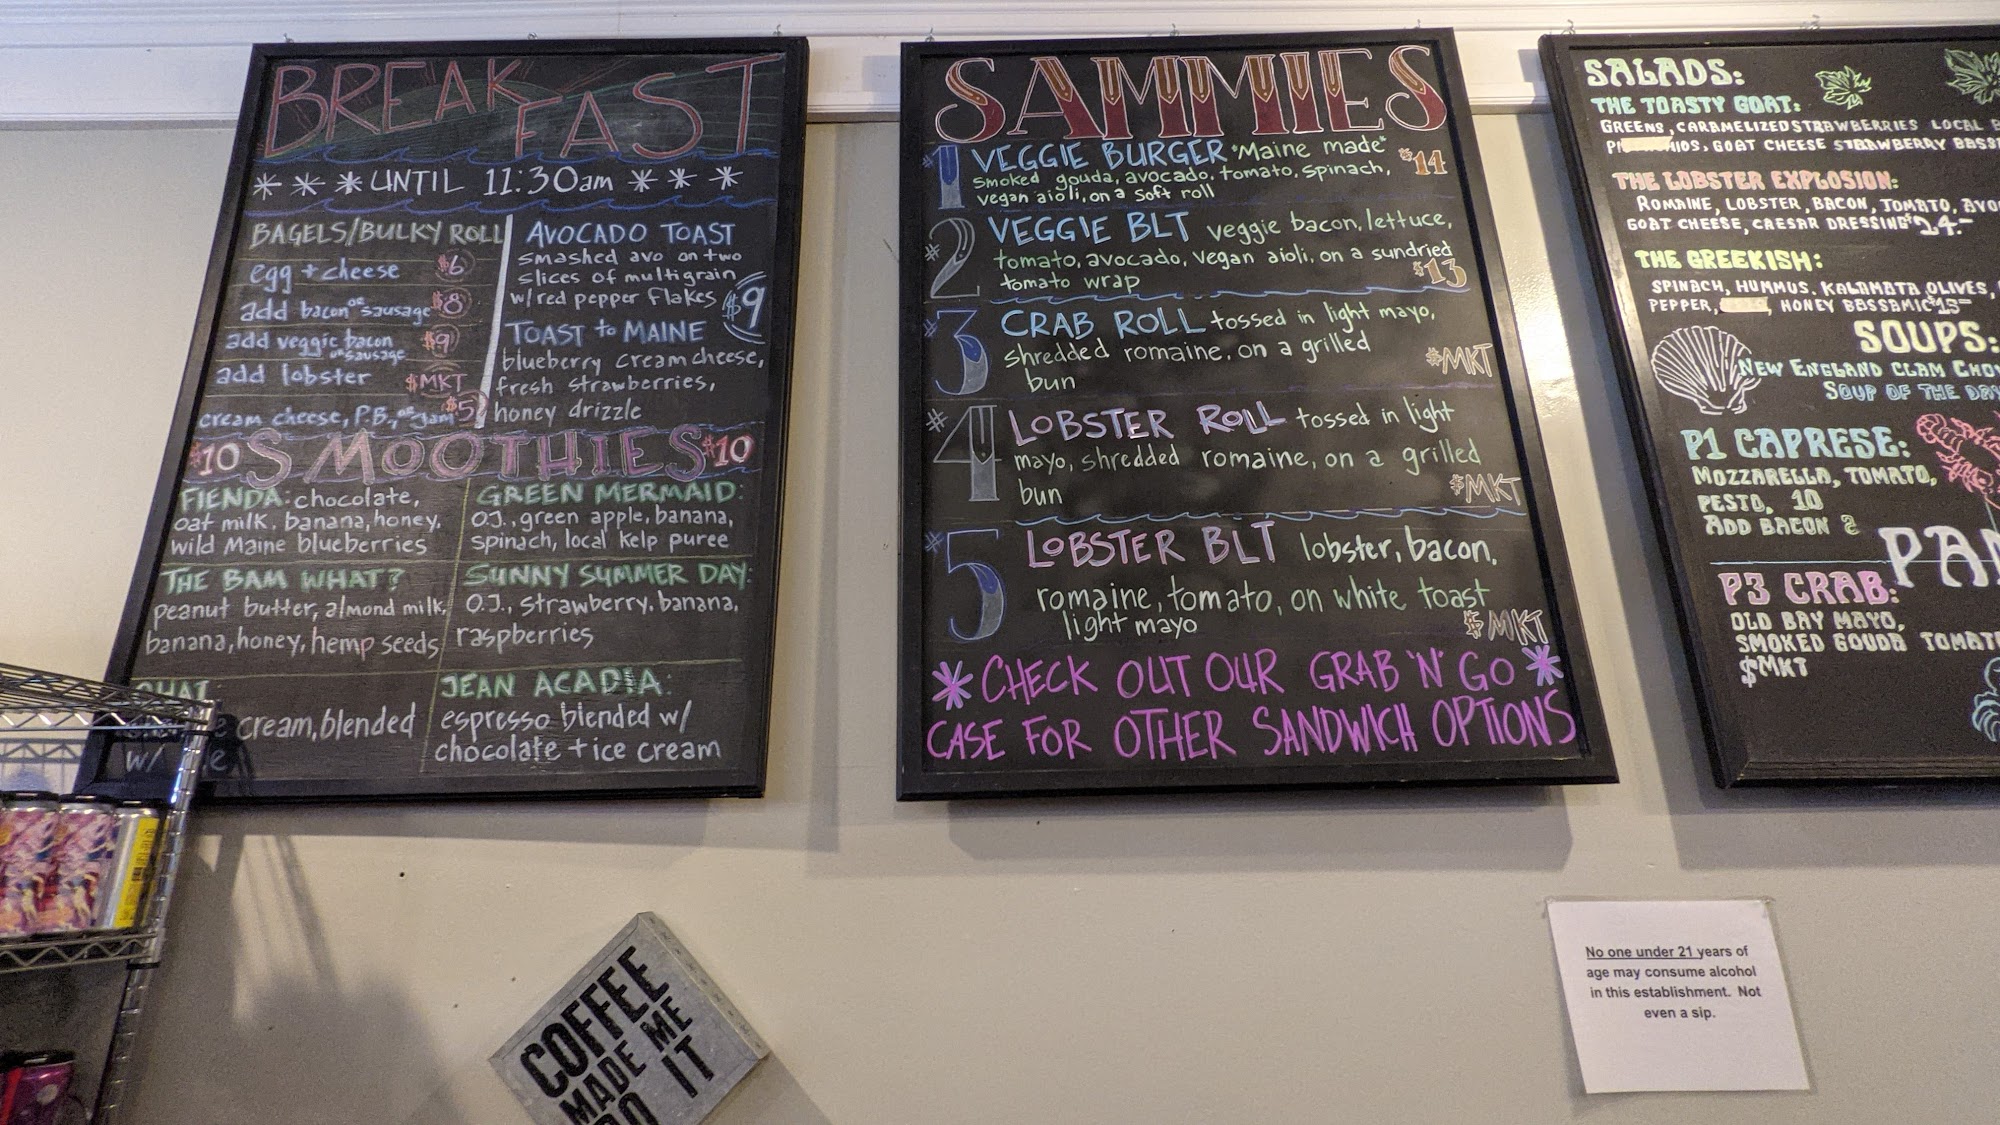 BREAKFAST
UNTIL 11:30am
BAGELS/BULKY ROLL
egg + cheese $6
add bacon or sausage $8
add veggie bacon or sausage $9
add lobster $MKT
cream cheese, P.B., or jam $5
AVOCADO TOAST
smashed avo on two
slices of multigrain
w/ red pepper flakes $9
TOAST to MAINE
blueberry cream cheese,
fresh strawberries,
honey drizzle
$10 SMOOTHIES $10
FIENDA: chocolate,
oat milk, banana, honey,
wild Maine blueberries
GREEN MERMAID:
O.J., green apple, banana,
spinach, local kelp puree
THE BAM WHAT?
peanut butter, almond milk,
banana, honey, hemp seeds
SUNNY SUMMER DAY:
O.J., strawberry, banana,
raspberries
cream, blended
w/
JEAN ACADIA:
espresso blended w/
chocolate + ice cream
SAMMIES
#1 VEGGIE BURGER "Maine made" $14
smoked gouda, avocado, tomato, spinach,
vegan aioli, on a soft roll
#2 VEGGIE BLT veggie bacon, lettuce,
tomato, avocado, vegan aioli, on a sundried
tomato wrap $13
#3 CRAB ROLL tossed in light mayo,
shredded romaine, on a grilled
bun $MKT
#4 LOBSTER ROLL tossed in light
mayo, shredded romaine, on a grilled
bun $MKT
#5 LOBSTER BLT lobster, bacon,
romaine, tomato, on white toast
light mayo $MKT
CHECK OUT OUR GRAB 'N' GO
CASE FOR OTHER SANDWICH OPTIONS
SALADS:
THE TOASTY GOAT:
GREENS, CARAMELIZED STRAWBERRIES LOCAL
GOAT CHEESE STRAWBERRY
THE LOBSTER EXPLOSION:
ROMAINE, LOBSTER, BACON, TOMATO,
GOAT CHEESE, CAESAR DRESSING $24.-
THE GREEKISH:
SPINACH, HUMMUS, KALAMATA OLIVES,
PEPPER, HONEY BASSAMIC $15
SOUPS:
NEW ENGLAND CLAM
SOUP OF THE DAY
P1 CAPRESE:
MOZZARELLA, TOMATO,
PESTO, 10
ADD BACON 2
P3 CRAB:
OLD BAY MAYO,
SMOKED GOUDA
$MKT
No one under 21 years of
age may consume alcohol
in this establishment. Not
even a sip.
COFFEE
MADE ME
DO IT